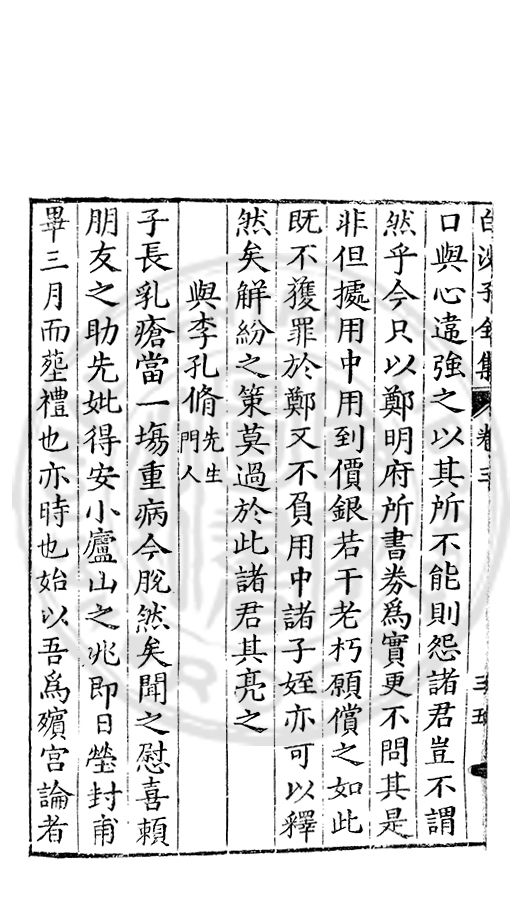 白沙子全集 卷三
口與心違強之以其所不能則怨諸君豈不謂
然乎今只以鄭明府所書券為實更不問其是
非但據用中用到價銀若干老朽願償之如此
既不獲罪於鄭又不負用中諸子姪亦可以釋
然矣解紛之策莫過於此諸君其亮之
與李孔脩先生門人
子長乳瘡當一塲重病今脫然矣聞之慰喜賴
朋友之助先妣得安小廬山之兆即日塋封甫
畢三月而塟禮也亦時也始以吾為殯宮論者